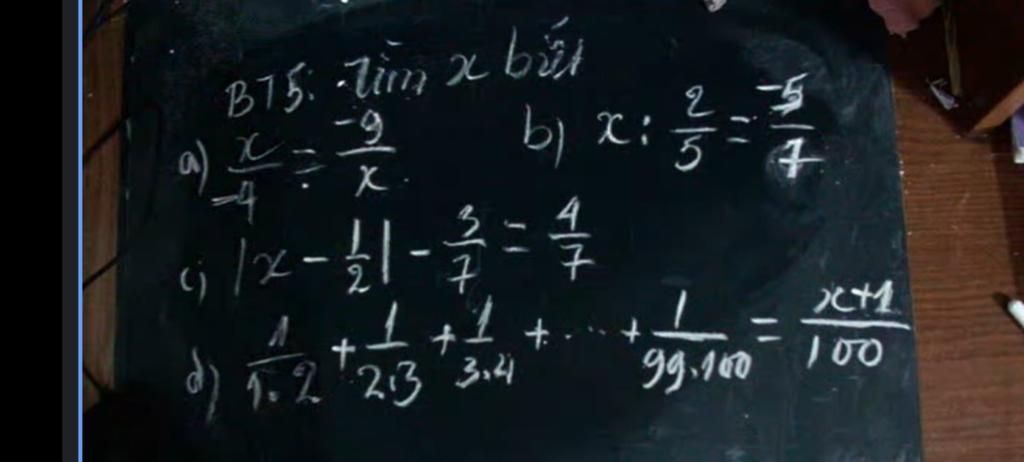 BT5: Tìm x biết
a) x/-4 = -9/x b) x : 2/5 = -5/7
c) |x - 1/2| - 3/7 = 4/7
d) 1/1.2 + 1/2.3 + 1/3.4 + ... + 1/99.100 = x+1/100